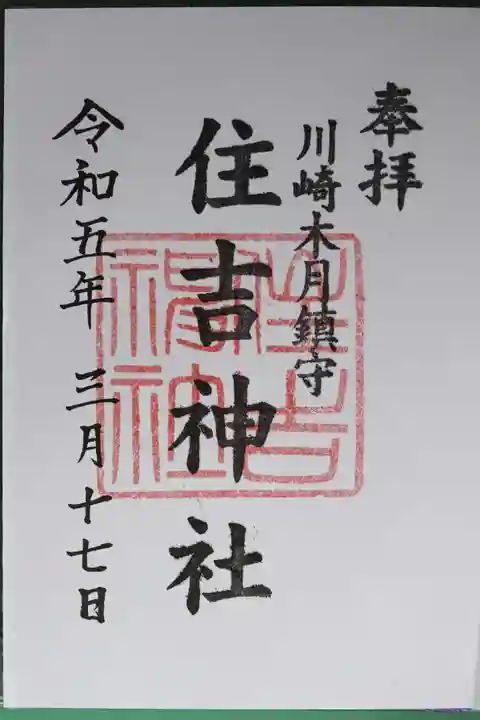 奉拝
川崎木月鎮守
住吉神社
令和五年 三月十七日